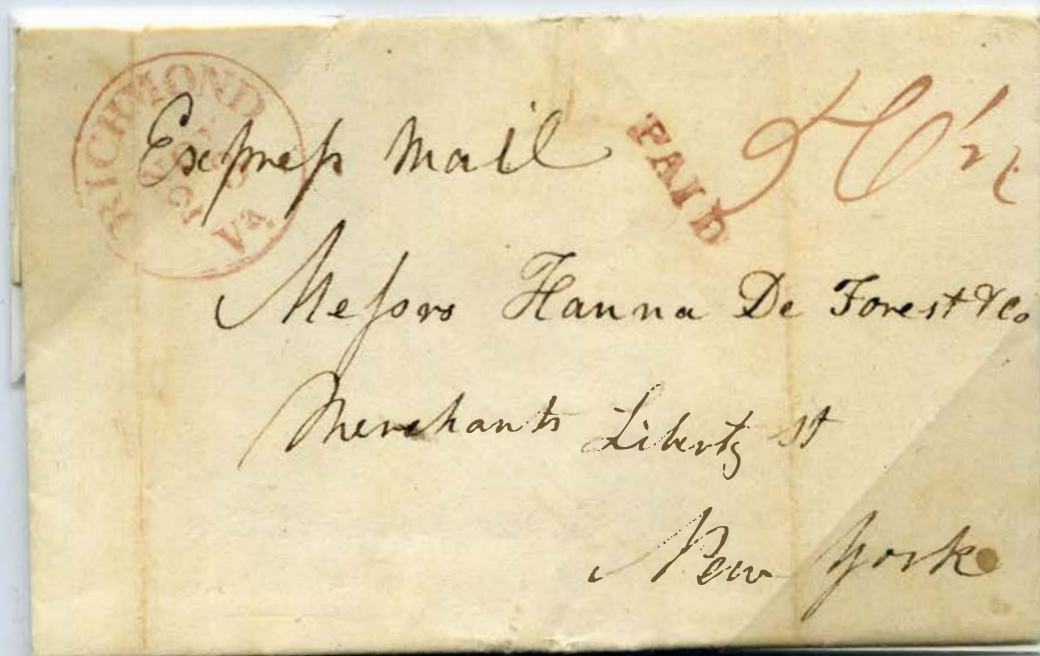 RICHMOND
Va.
Express Mail
PAID
Messrs Hanna De Forest & Co
Merchants Liberty st
New York